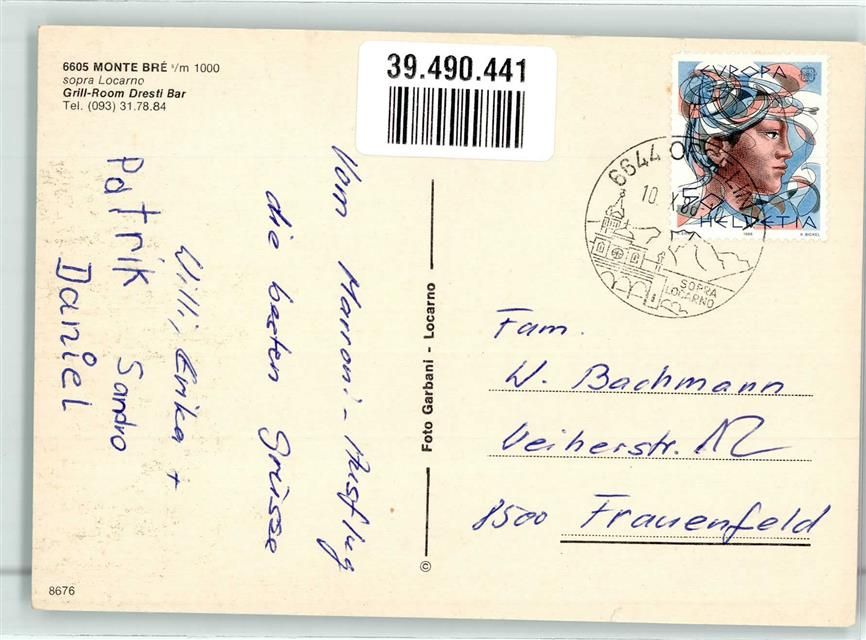 6605 MONTE BRÉ s/m 1000
sopra Locarno
Grill-Room Dresti Bar
Tel. (093) 31.78.84
39.490.441
EUROPA
HELVETIA
1986
H. BICKEL
6644 ORSELINA
10. X. 86
SOPRA
LOCARNO
Vom Marroni-Ausflug
die besten Grüsse
Willi, Erika +
Patrik Sandro
Daniel
© Foto Garbani - Locarno
Fam.
W. Bachmann
Weiherstr. 12
8500 Frauenfeld
8676